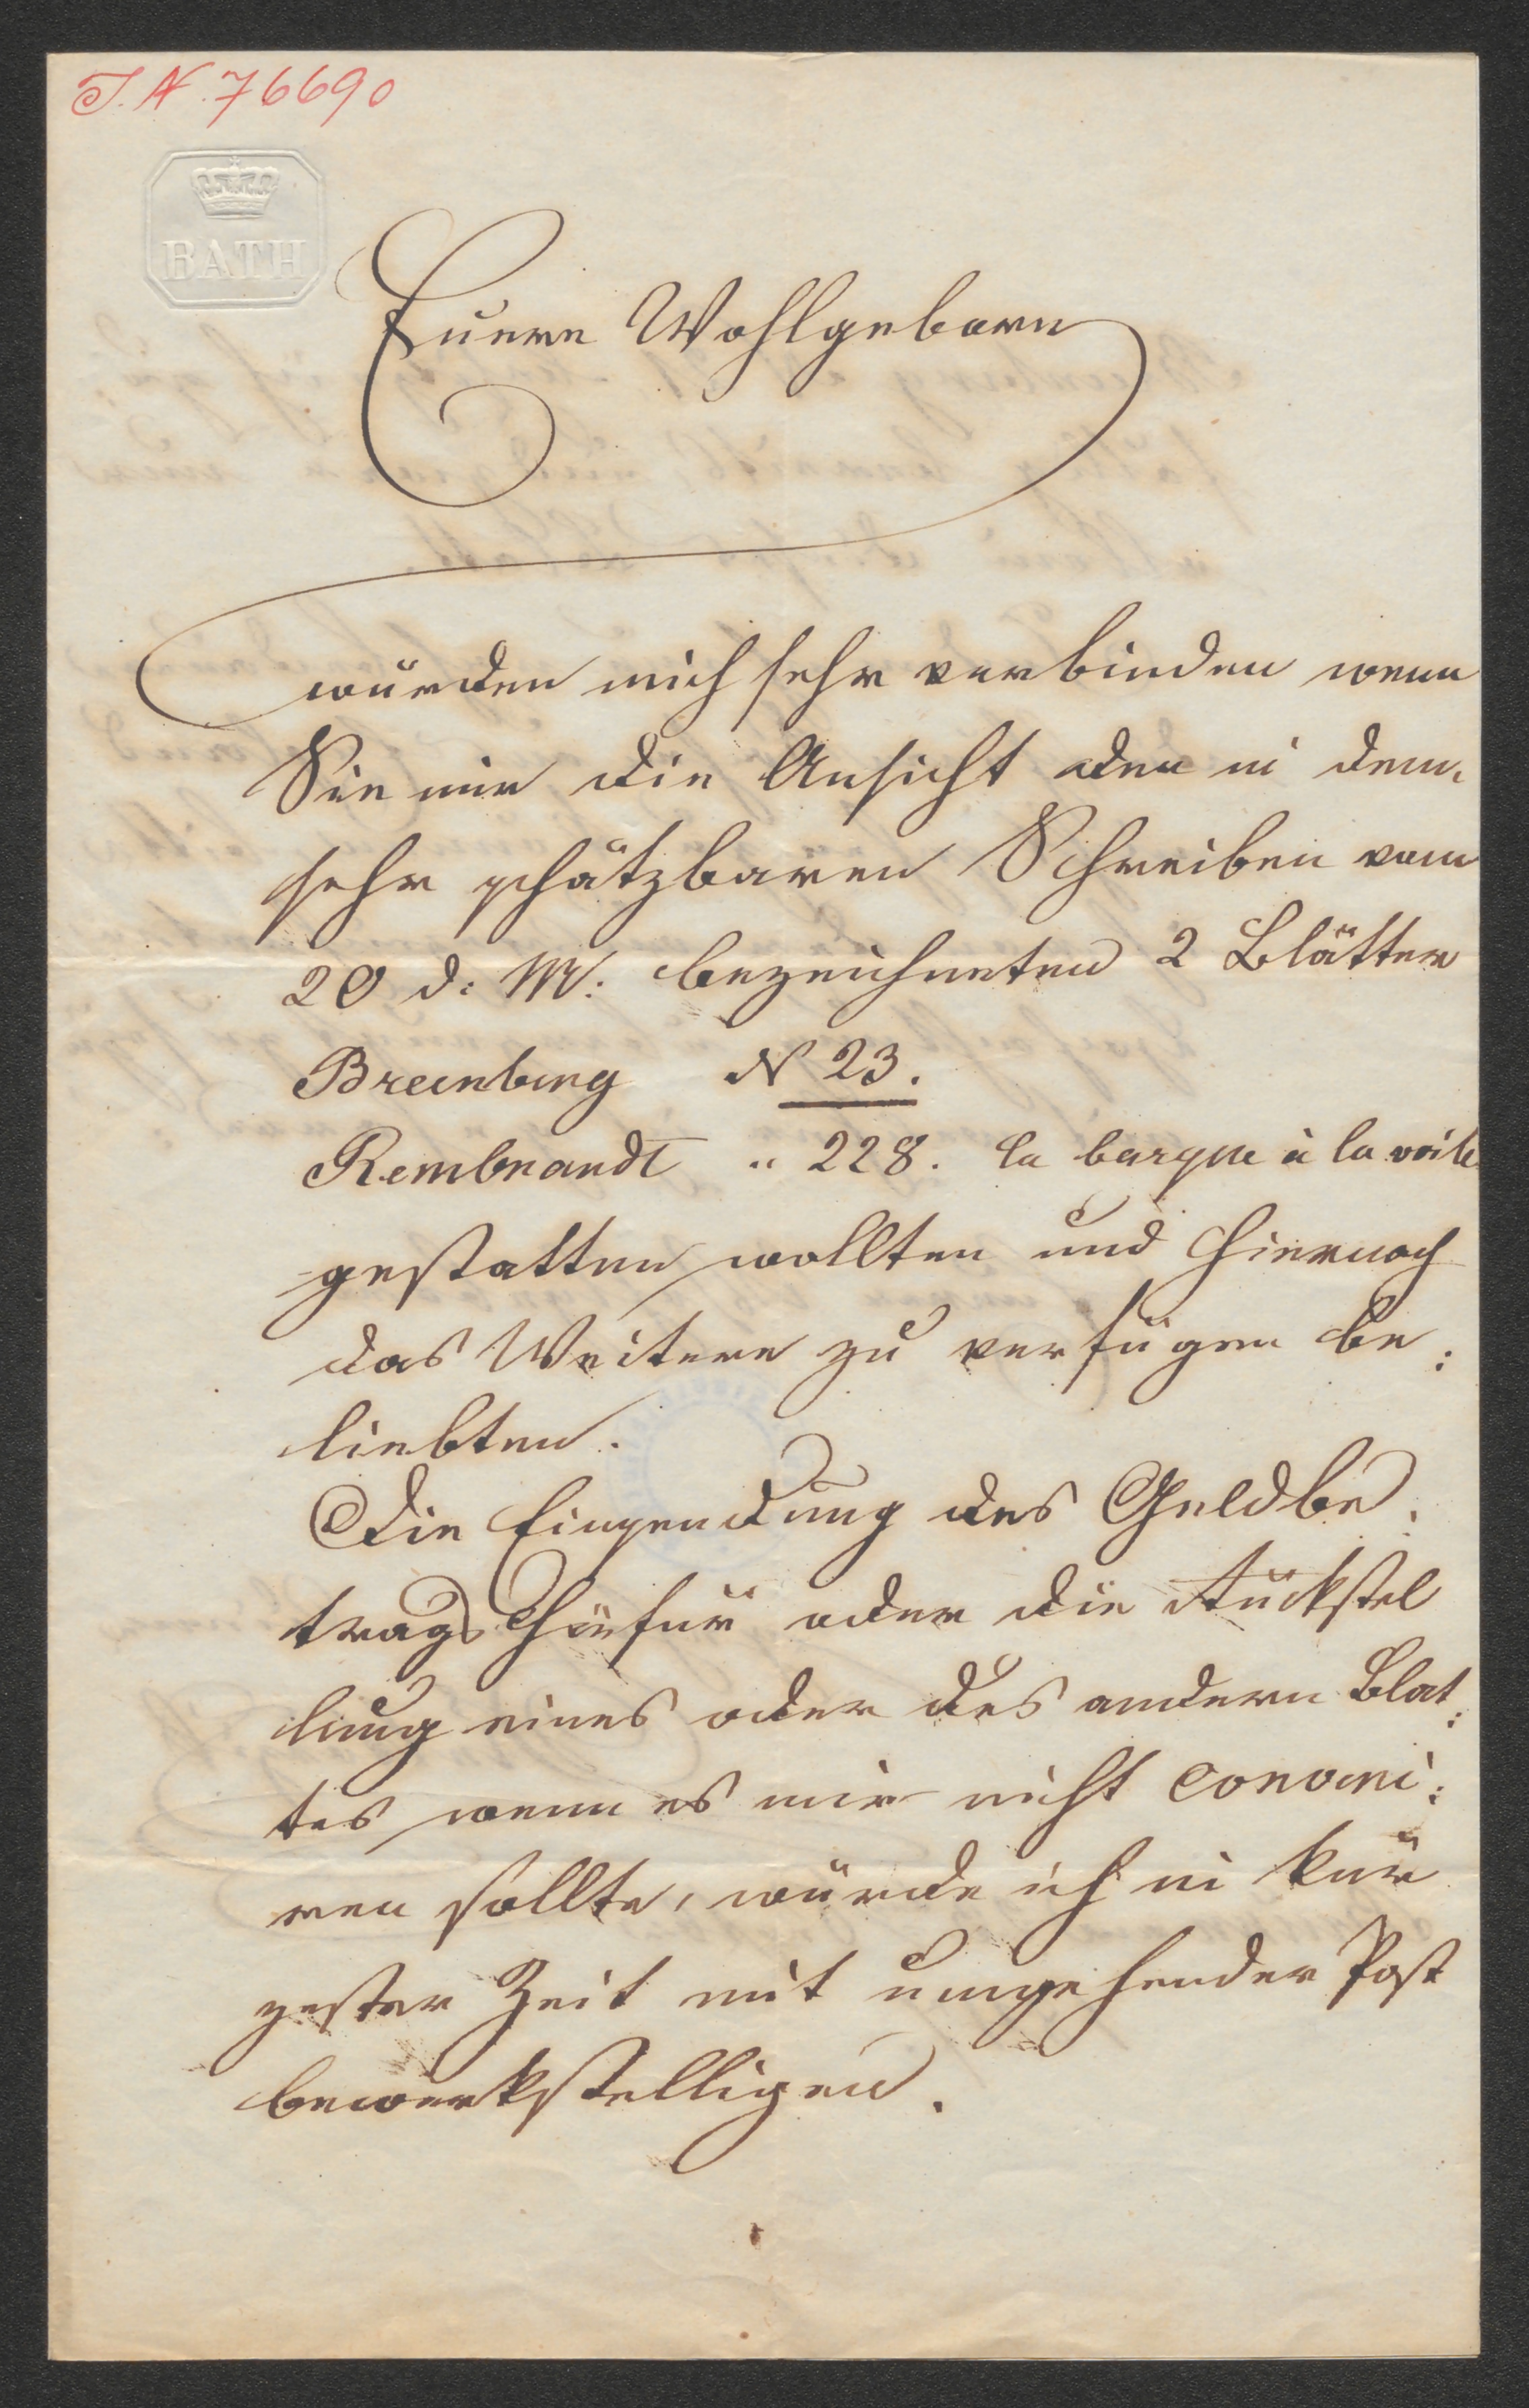 J. N. 76690
BATH
Euere Wohlgeborn
würden mich sehr verbinden wenn
Sie mir die Ansicht der in dem
sehr schätzbaren Schreiben vom
20 d: M: bezeichneten 2 Blätter
Breenberg N 23.
Rembrandt " 228. la barque à la voile
gestatten wollten und hiernach
das Weitere zu verfügen be:
liebten.
Die Einsendung des Geldbe:
trags hiefür oder die Rückstel
lung eines oder des andern Blat:
tes wenn es mir nicht conveni:
ren sollte, würde ich in kür
zester Zeit mit umgehender Post
bewerkstelligen.